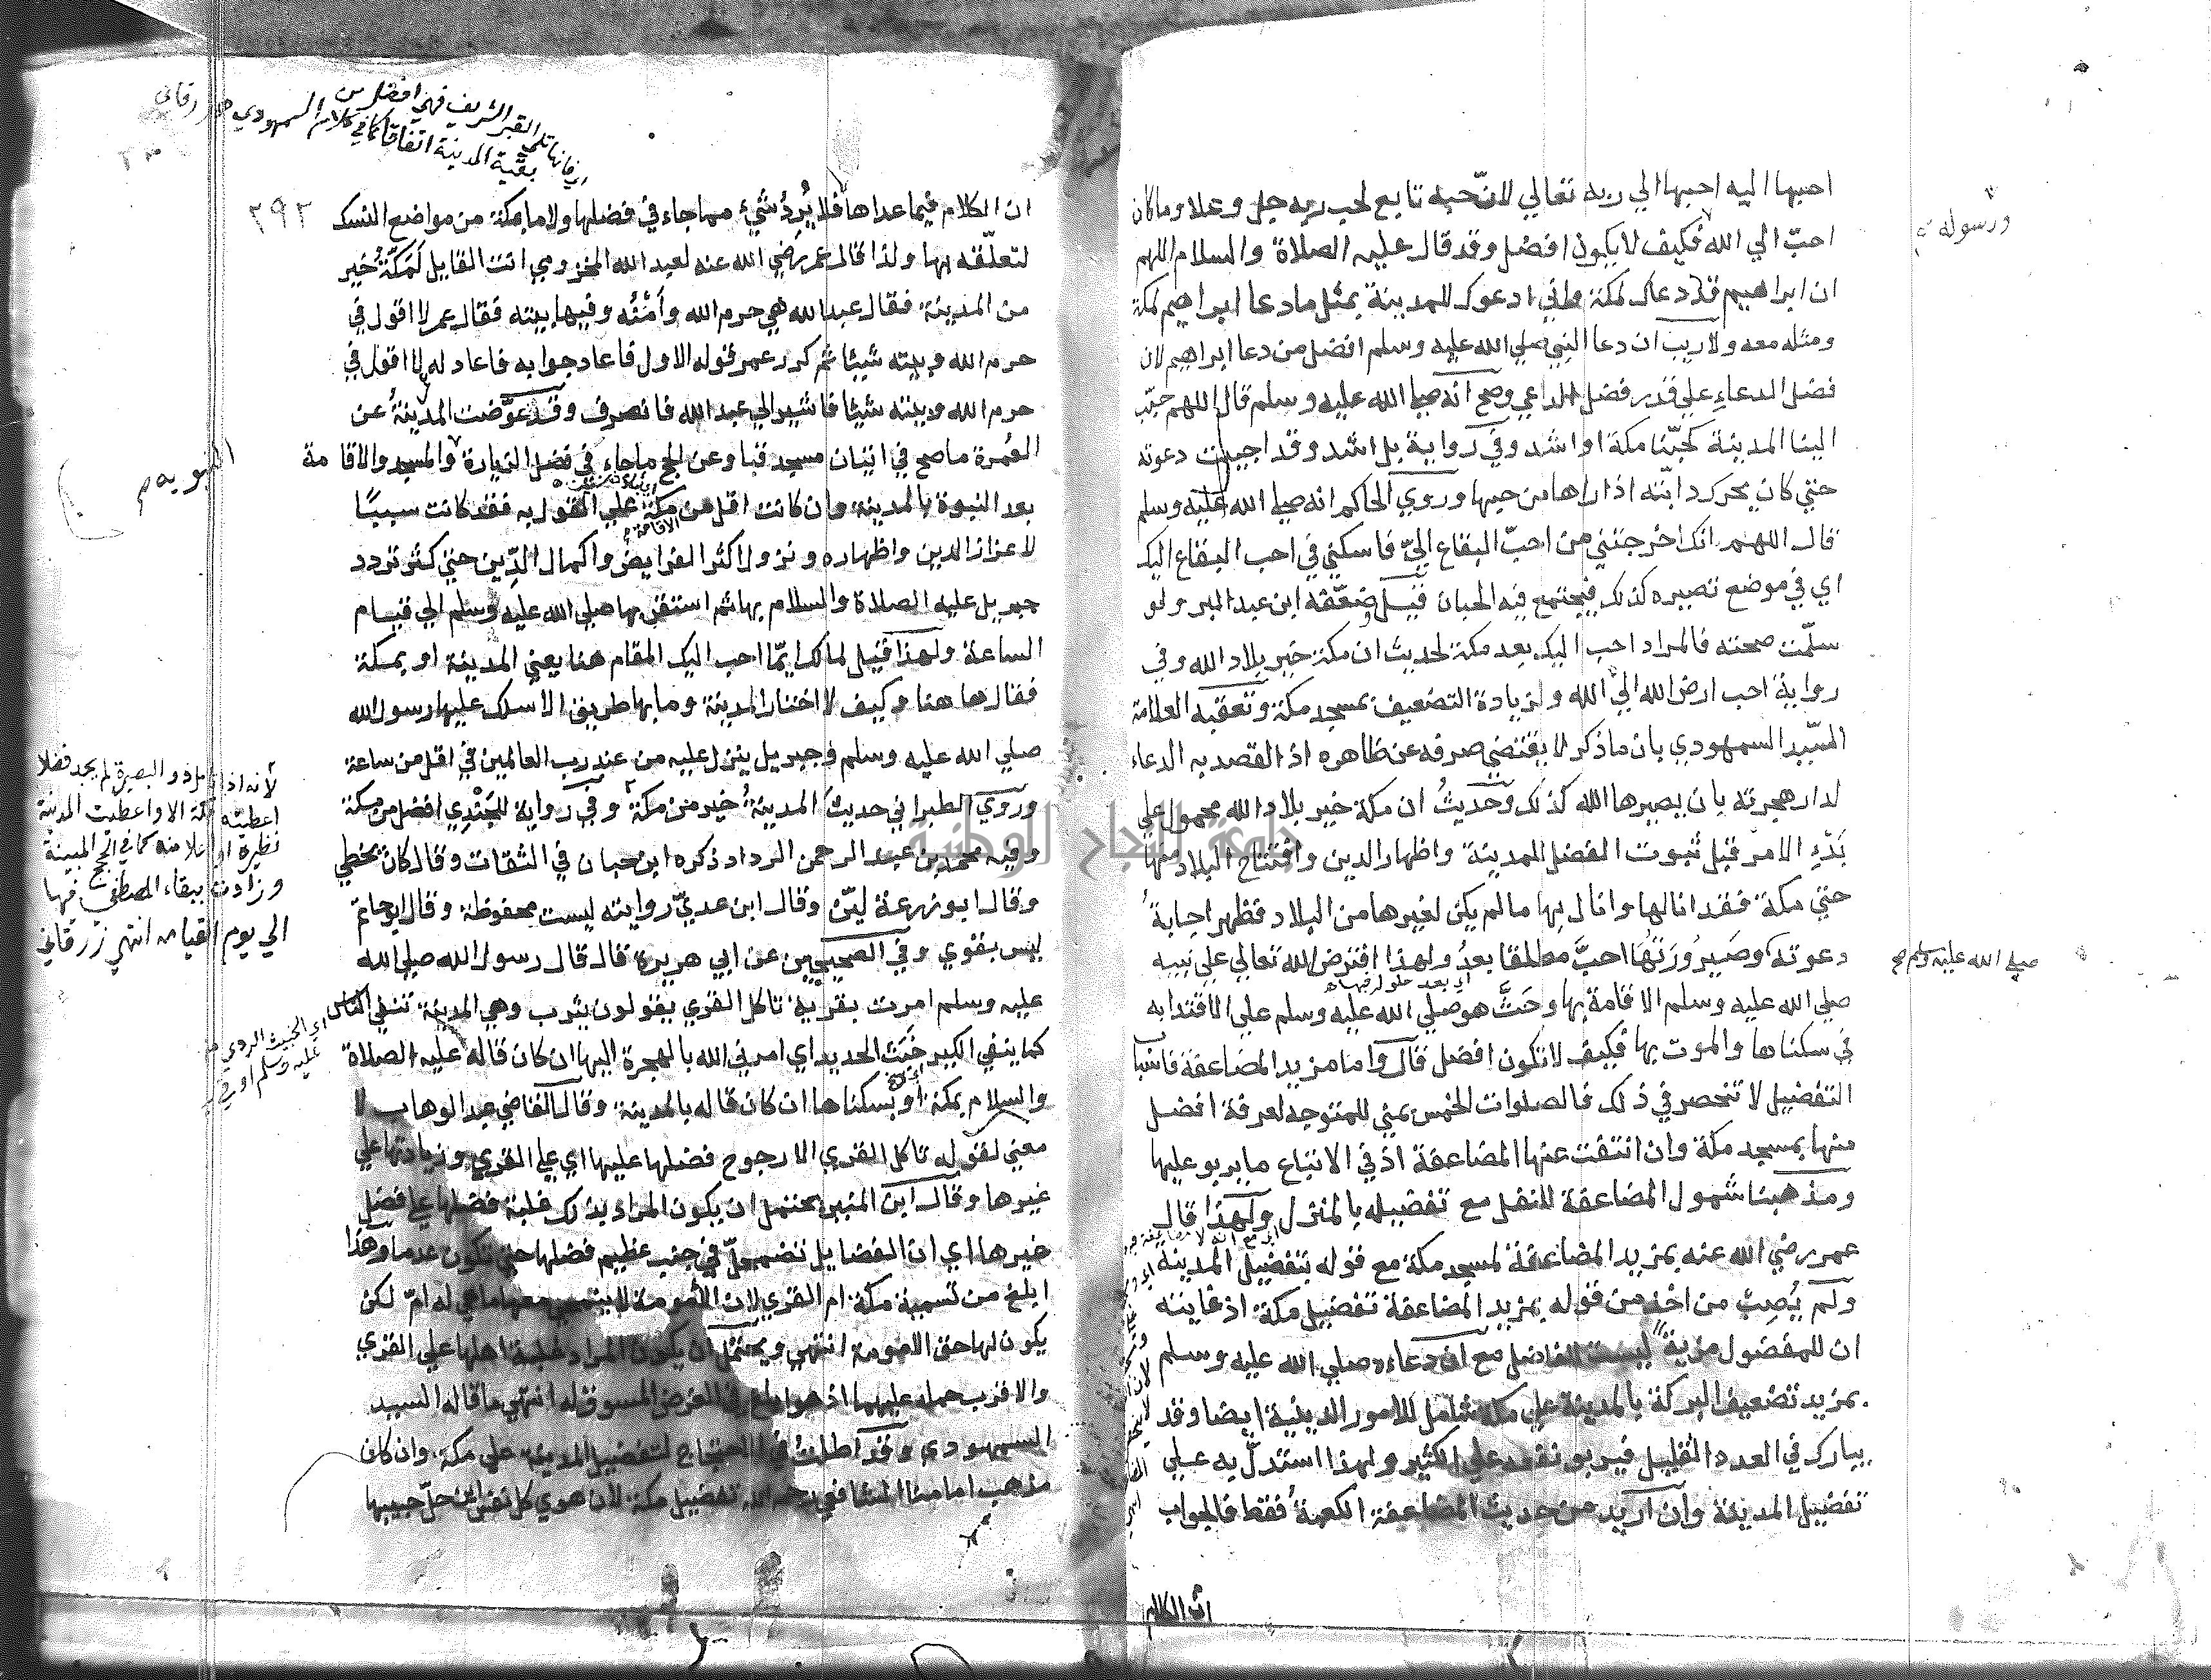 احبها اليه احبها الي ربه تعالي لانّ حبه تابع لحب ربه جل وعلا وما كان
احبّ الي الله فكيف لا يكون افضل وقد قال عليه الصلاة والسلام اللهم
ان ابراهيم قد دعاك لمكة واني ادعوك للمدينة بمثل ما دعا ابراهيم لمكة
ومثله معه ولا ريب ان دعا النبي صلي الله عليه وسلم افضل من دعا ابراهيم لان
فضل الدعاء علي قدر فضل الداعي وصح انه صلي الله عليه وسلم قال اللهم حبّب
الينا المدينة كحبّنا مكة او اشد وفي رواية بل اشد وقد اجيبت دعوته
حتي كان يحرك دابّته اذا راها من حبها وروي الحاكم انه صلي الله عليه وسلم
قال اللهم انك اخرجتني من احبّ البقاع اليّ فاسكني في احب البقاع اليك
اي في موضع تصيره كذلك فيجتمع فيه الحبان قيل ضعّفه ابن عبد البر ولو
سلّمت صحته فالمراد احب اليك بعد مكة لحديث ان مكة خير بلاد الله وفي
رواية احب ارض الله الي الله ولزيادة التضعيف بمسجد مكة وتعقبه العلامة
السّيد السمهودي بان ما ذكر لا يقتضي صرفه عن ظاهره اذ القصد به الدعاء
لدار هجرته بان يصيرها الله كذلك وحديثُ ان مكة خير بلاد الله محمول علي
بَدْءِ الامر قبل ثبوت الفضل للمدينة واظهار الدين وافتتاح البلاد منها
حتي مكة فقد انالها وانال بها ما لم يكن لغيرها من البلاد فظهر اجابةُ
دعوته وصَيرُورَتُهَا احبَّ مطلقا بعدُ ولهذا افترض الله تعالي علي نبيه
اي بعد حلوله فيها
صلي الله عليه وسلم الاقامة بها وحَثَّ هو صلي الله عليه وسلم علي الاقتدا به
في سكناها والموت بها فكيف لا تكون افضل قال واما مزيد المضاعفة فاسباب
التفضيل لا تنحصر في ذلك فالصلوات الخمس بمني للمتوجه لعرفة افضل
منها بمسجد مكة وان انتفت عنها المضاعفة اذ في الاتباع ما يربو عليها
ومذهبنا شمول المضاعفة للنفل مع تفضيله بالمنزل ولهذا قال
عمر رضي الله عنه بمزيد المضاعفة لمسجد مكة مع قوله بتفضيل المدينة
ولم يُصِب من اخذ من قوله بمزيد المضاعفة تفضيل مكة اذ غايته
ان للمفضول مزية ليست للفاضل مع ان دعاءه صلي الله عليه وسلم
بمزيد تضعيف البركة بالمدينة علي مكة شامل للامور الدينية ايضا وقد
يبارك في العدد القليل فيربو نفعه علي الكثير ولهذا استدلّ به علي
تفضيل المدينة وان اريد من حديث المضاعفة الكعبةُ فقط فالجواب
ان الكلام
ورسوله
صلي الله عليه وسلم صح
ان الكلام فيما عداها فلا يُرِدُ شيْءٌ مما جاء في فضلها ولا ما بمكة من مواضع النسك
لتعلّقه بها ولذا قال عمر رضي الله عنه لعبد الله المخزومي انت القايل لَمَكّةُ خير
من المدينة فقال عبد الله هي حرم الله وأَمْنُه وفيها بيته فقال عمر لا اقول في
حرم الله وبيته شيئا ثم كرر عمر قوله الاول فاعاد جوابه فاعاد له لا اقول في
حرم الله وبيته شيئا فاشير الي عبد الله فانصرف وقد عوّضت المدينةُ عن
العُمرة ما صح في اتيان مسجد قبا وعن الحج ما جاء في فضل الزيارة والمسجد والاقامة
بعد النبوة بالمدينة وان كانت اقل من مكة علي القول به فقد كانت سببًا
لاعزاز الدين واظهاره ونزول اكثر الفرايض واكمال الدِّين حتي كثر تردد
جبريل عليه الصلاة والسلام بها ثم استقر بها صلي الله عليه وسلم الي قيام
الساعة ولهذا قيل لمالك ايّما احب اليك المقام هنا يعني المدينة او بمكة
فقال ها هنا وكيف لا اختار المدينة وما بها طريق الا سلك عليها رسول الله
صلي الله عليه وسلم وجبريل ينزل عليه من عند رب العالمين في اقل من ساعة
وروي الطبراني حديث المدينةُ خير من مكة وفي رواية للجَنَدِي افضل من مكة
وفيه محمد بن عبد الرحمن الرداد ذكره ابن حبان في الثقات وقال كان يخطي
وقال ابو زرعة ليّن وقال ابن عديّ روايته ليست محفوظة وقال ابو حاتم
ليس بقوي وفي الصحيحين عن ابي هريرة قال قال رسول الله صلي الله
عليه وسلم امرت بقرية تاكل القري يقولون يثرب وهي المدينة تنفي الناس
كما ينفي الكير خَبَث الحديد اي امرني الله بالهجرة اليها ان كان قاله عليه الصلاة
والسلام بمكة او بسكناها ان كان قاله بالمدينة وقال القاضي عبد الوهاب لا
معني لقوله تاكل القري الا رجوح فضلها عليها اي علي القري وزيادتها علي
غيرها وقال ابن المنير يحتمل ان يكون المراد بذلك غلبة فضلها علي فضل
غيرها اي ان الفضايل تضمحلّ في جنب عظيم فضلها حتي تكون عدما وهذا
ابلغ من تسمية مكة ام القري لان الامومة لا ينمحي معها ما هي له امّ لكن
يكون لها حق الامومة انتهي ويحتمل ان يكون المراد غلبة اهلها علي القري
والاقرب حمله عليهما اذ هو ابلغ في الغرض المسوق له انتهي ما قاله السيد
السمهودي وقد اطلت في الاحتجاج لتفضيل المدينة علي مكة وان كان
مذهب امامنا الشافعي رحمه الله تفضيل مكة لان هوي كل نفس اين حلّ حبيبها
القبر الشريف فهي افضل من
بقية المدينة اتفاقا كما في كلام السمهودي
٢٩٢
لأنه اذا تامل ذو البصيرة لم يجد فضلا
اعطيته مكة الا واعطيت المدينة
نظيره او اعلا منه كما في الحجج المبينة
وزادت ببقاء المصطفي فيها
الي يوم القيامه انتهي زرقاني
اي الخبيث الردي
جامعة النجاح الوطنية